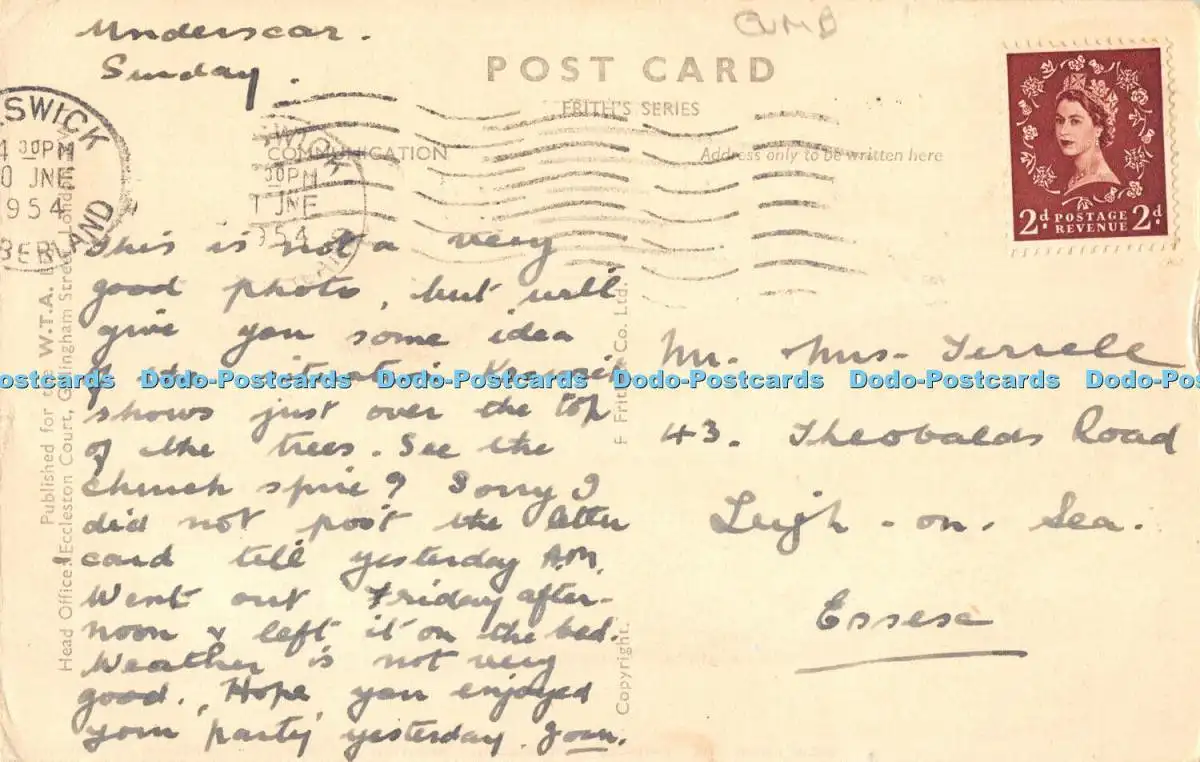 Underscar.
Sunday.
CUMB
POST CARD
FRITH'S SERIES
COMMUNICATION
Address only to be written here
KESWICK
4 30PM
0 JNE
1954
2d POSTAGE REVENUE 2d
This is not a very
good photo, but will
give you some idea
of the situation Keswick
shows just over the top
of the trees. See the
church spire? Sorry I
did not post the letter
card till yesterday A.M.
Went out Friday after-
noon & left it on the bed.
Weather is not very
good. Hope you enjoyed
your 'party' yesterday. Joan.
Mr. Mrs. Terrell
43. Theobalds Road
Leigh-on-Sea.
Essex
Published for the W.T.A.
Head Office: Eccleston Court, Gillingham Street, London
F Frith & Co. Ltd.
Copyright.
Dodo-Postcards Dodo-Postcards Dodo-Postcards Dodo-Postcards Dodo-Postcards